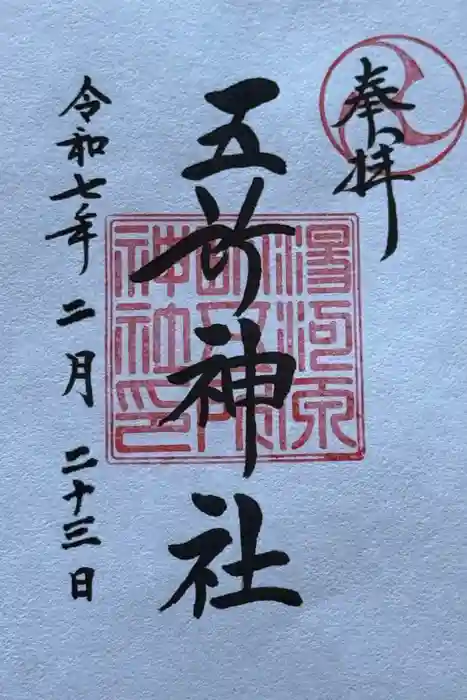 奉拝
五所神社
湯河原
鎮座五所
神社印
令和七年二月二十三日